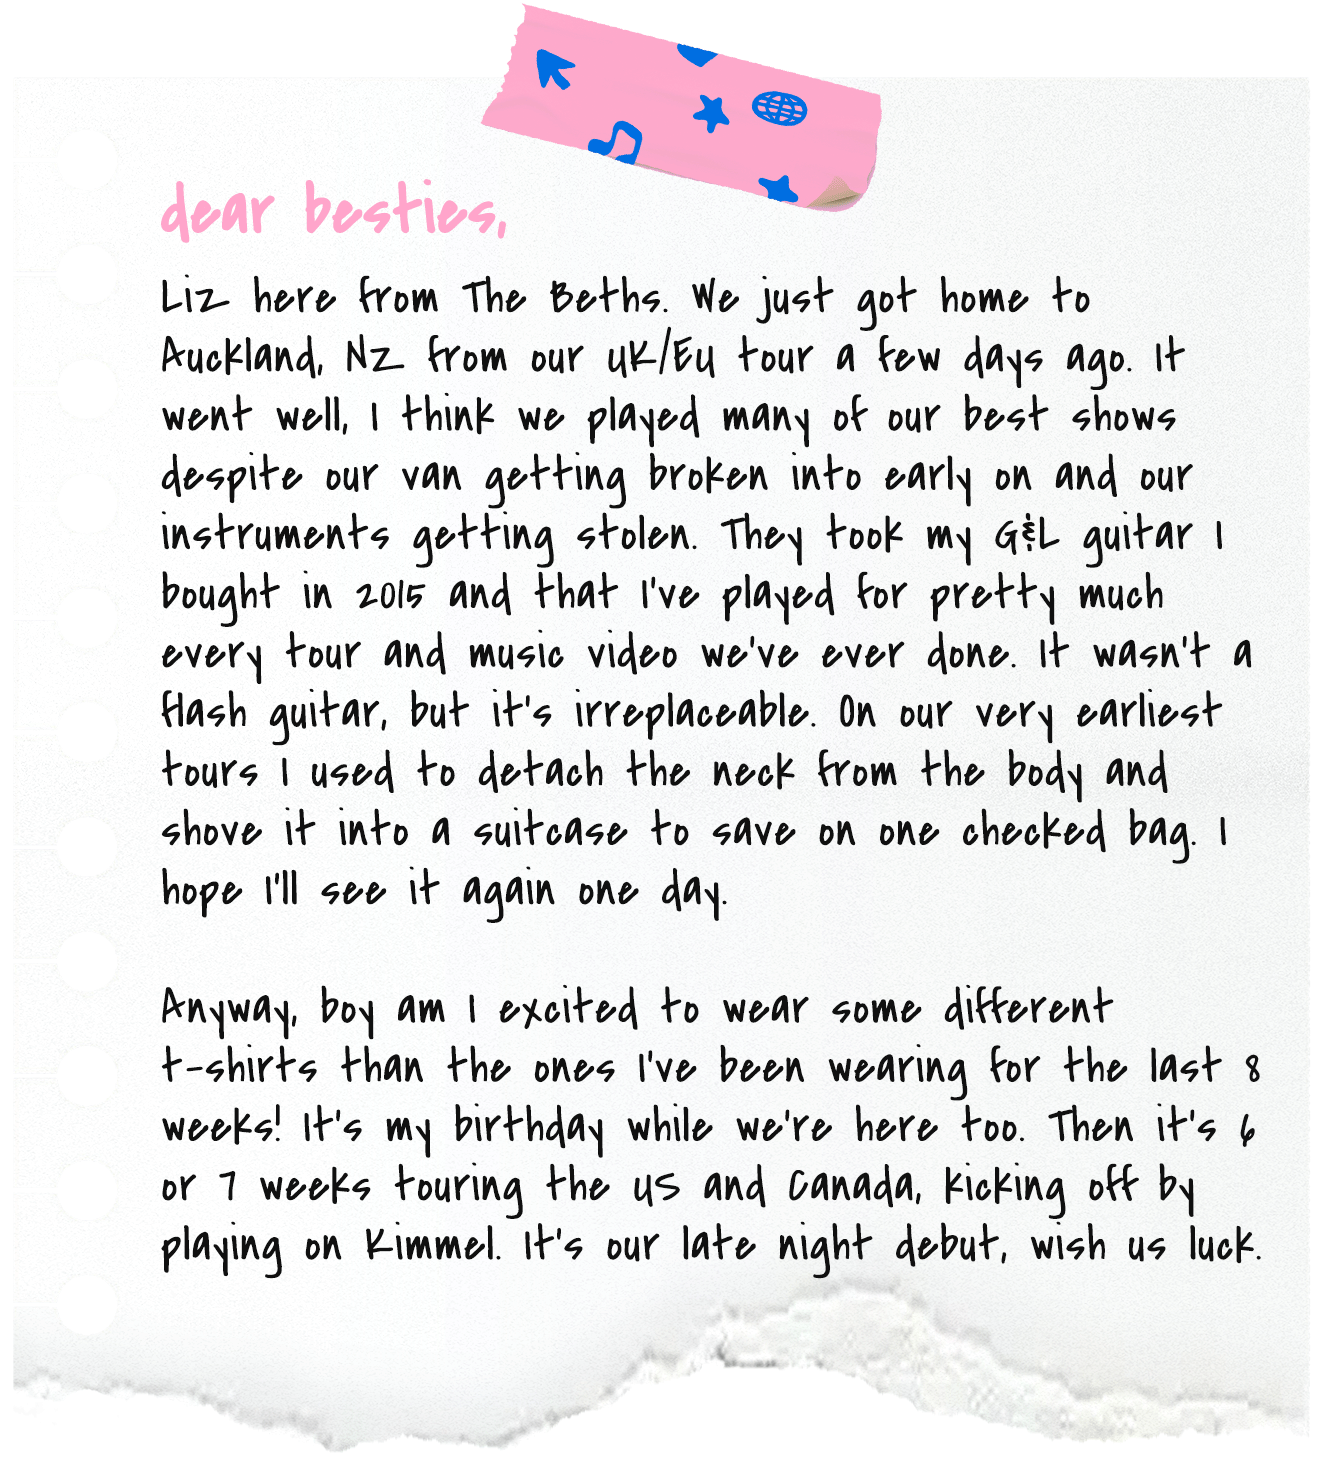 dear besties,
Liz here from The Beths. We just got home to
Auckland, NZ from our UK/EU tour a few days ago. It
went well, I think we played many of our best shows
despite our van getting broken into early on and our
instruments getting stolen. They took my G&L guitar I
bought in 2015 and that I've played for pretty much
every tour and music video we've ever done. It wasn't a
flash guitar, but it's irreplaceable. On our very earliest
tours I used to detach the neck from the body and
shove it into a suitcase to save on one checked bag. I
hope I'll see it again one day.
Anyway, boy am I excited to wear some different
t-shirts than the ones I've been wearing for the last 8
weeks! It's my birthday while we're here too. Then it's 6
or 7 weeks touring the US and Canada, kicking off by
playing on Kimmel. It's our late night debut, wish us luck.